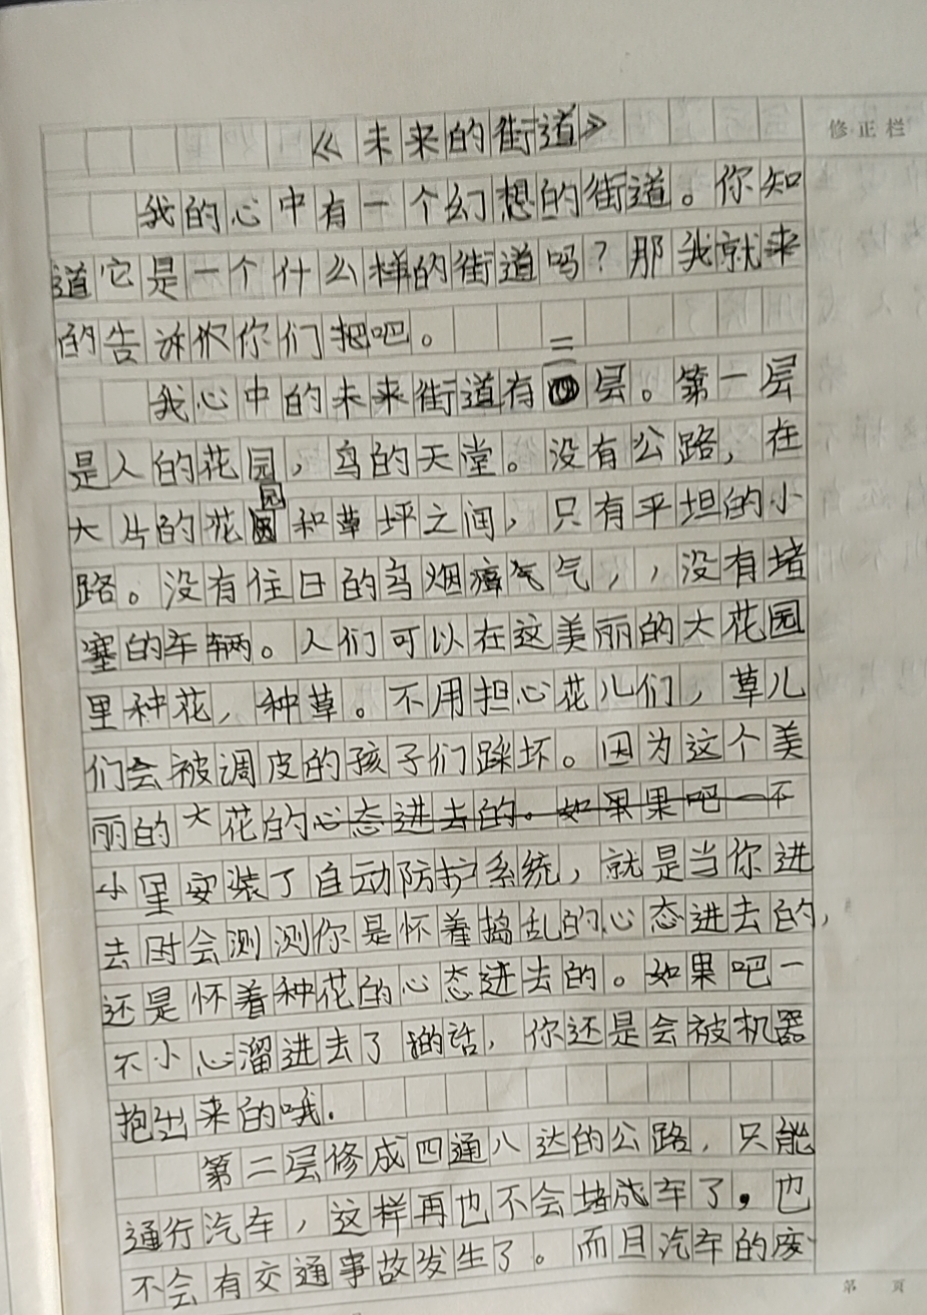 《未来的街道》
修正栏
我的心中有一个幻想的街道。你知
道它是一个什么样的街道吗？那我就来
的告诉你们吧。
二
我心中的未来街道有层。第一层
是人的花园，鸟的天堂。没有公路，在
园
大片的花和草坪之间，只有平坦的小
路。没有住日的乌烟瘴气气，，没有堵
塞的车辆。人们可以在这美丽的大花园
里种花，种草。不用担心花儿们，草儿
们会被调皮的孩子们踩坏。因为这个美
丽的大花的心态进去的。如果果吧一不
小里安装了自动防护系统，就是当你进
去时会测测你是怀着捣乱的心态进去的，
还是怀着种花的心态进去的。如果吧一
不小心溜进去了的话，你还是会被机器
抱出来的哦.
第二层修成四通八达的公路，只能
通行汽车，这样再也不会堵成车了，也
不会有交通事故发生了。而且汽车的废
第 页